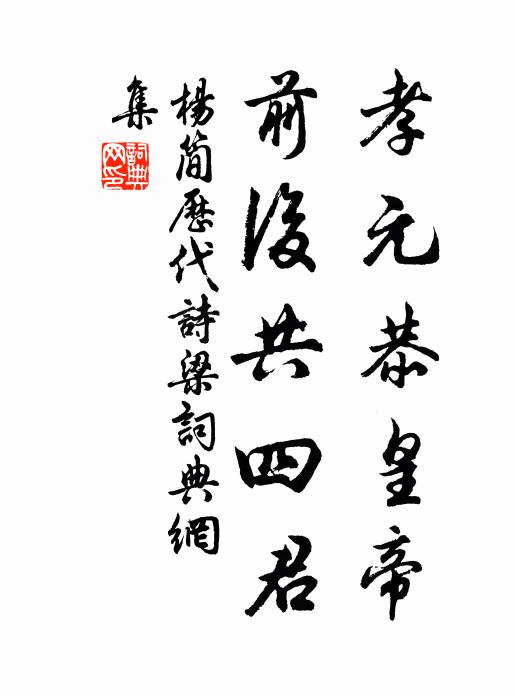 孝元恭皇帝
前後共四君
楊簡歷代詩梁詞典網
集
詞典
网印